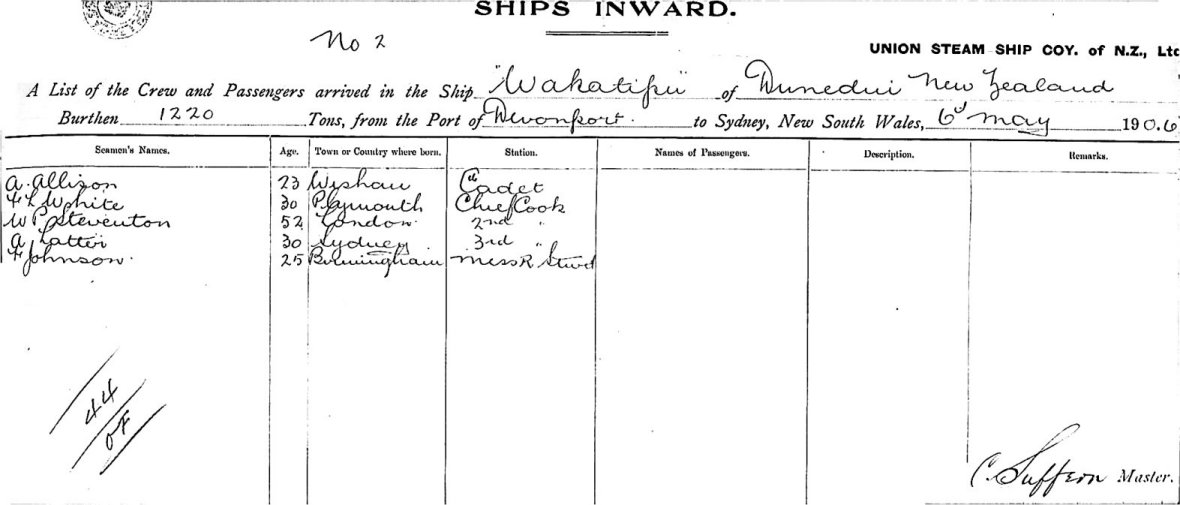 SHIPS INWARD.
No 2
UNION STEAM SHIP COY. of N.Z., Ltd
A List of the Crew and Passengers arrived in the Ship "Wakatipu" of Dunedin New Zealand
Burthen 1220 Tons, from the Port of Devonport. to Sydney, New South Wales, 6th May 1906
Seamen's Names. Age. Town or Country where born. Station. Names of Passengers. Description. Remarks.
A. Allison 23 Wishaw Cadet
White 30 Plymouth Chief Cook
W P Steventon 52 London 2nd "
A Latter 30 Sydney 3rd "
F Johnson. 25 Birmingham Mess R Stwd
44
OF
C. Suffern Master.